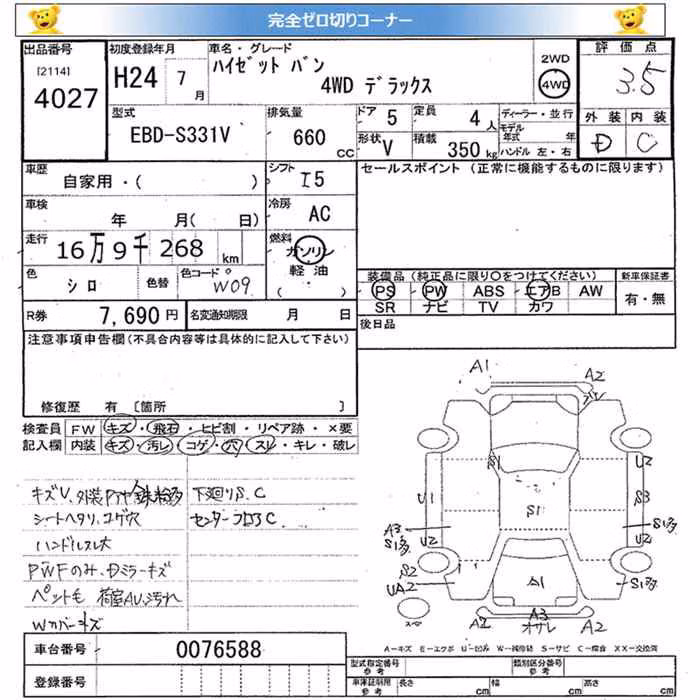 完全ゼロ切りコーナー
出品番号
[2114]
4027
初度登録年月
H24 7月
車名・グレード
ハイゼット バン
4WD デラックス
2WD
4WD
評価点
3.5
外装 内装
D C
型式
EBD-S331V
排気量
660 CC
ドア 5
定員 4人
ディーラー・並行
モデル年式 年
ハンドル 左・右
形状 V
積載 350 kg
車歴
自家用・( )
シフト
I5
セールスポイント (正常に機能するものに限ります)
車検
年 月( 日)
冷房
AC
走行
16万9千268 km
燃料
ガソリン
軽油
( )
色
シロ
色替
色コード
W09
装備品(純正品に限り○をつけてください)
新車保証書
PS PW ABS エアB AW
SR ナビ TV カワ
有・無
R券 7,690円
名変通知期限 月 日
後日品
注意事項申告欄(不具合内容等は具体的に記入して下さい)
修復歴 有 [箇所 ]
検査員 FW キズ・飛石・ヒビ割・リペア跡・×要
記入欄 内装 キズ・汚レ・コゲ・穴・スレ・キレ・破レ
キズV、外装 下廻りS、C
シートヘタリ、コゲ穴 センターフロアC
ハンドルスレ大
PWFのみ、Dミラーキズ
ペット毛 荷室AU、汚れ
Wカバーキズ
A1
A2
S1
U2
U1
S1
S3
A3
S1多
U2
S1多
U2
S2
UA2
A1
S1多
A2
A3
オサレ
A2
A-キズ E-エクボ U-凹み W-補修跡 S-サビ C-腐蝕 XX-交換済
車台番号
0076588
登録番号
型式指定番号
参考
類別区分番号
車庫証明用
参考
長さ cm
幅 cm
高さ cm